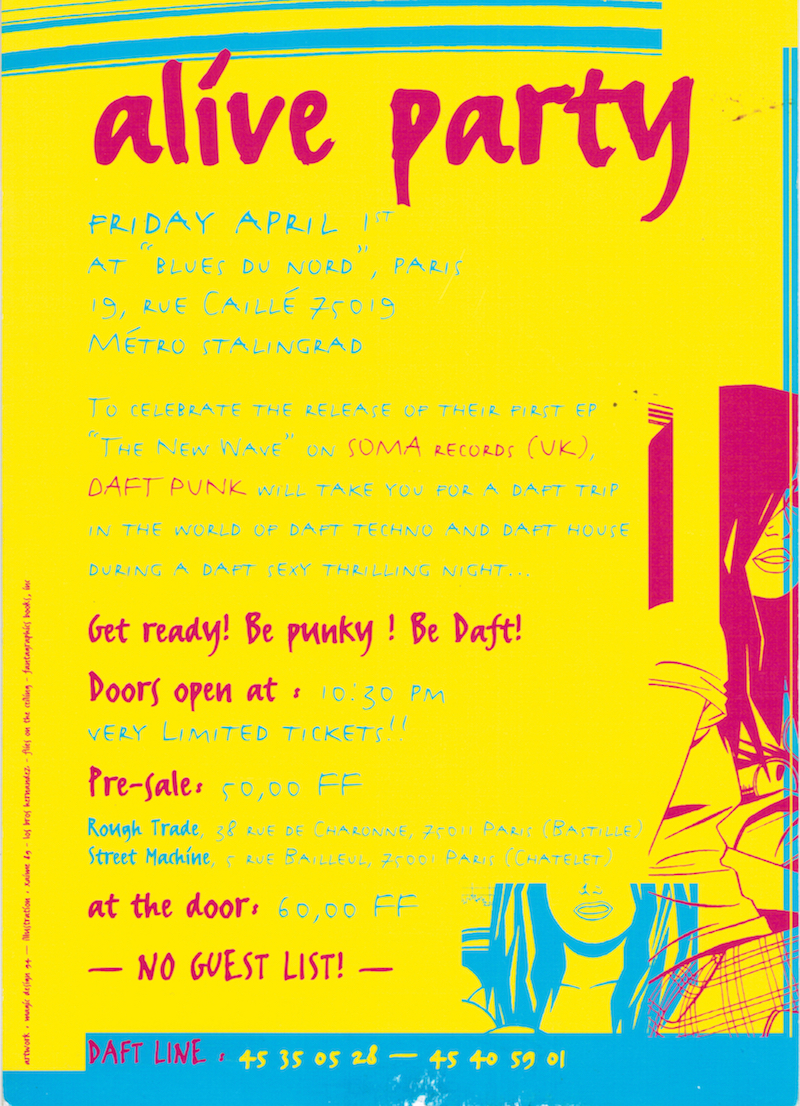 alive party
FRIDAY APRIL 1ST
AT "BLUES DU NORD", PARIS
19, RUE CAILLÉ 75019
MÉTRO STALINGRAD
TO CELEBRATE THE RELEASE OF THEIR FIRST EP
"THE NEW WAVE" ON SOMA RECORDS (UK),
DAFT PUNK WILL TAKE YOU FOR A DAFT TRIP
IN THE WORLD OF DAFT TECHNO AND DAFT HOUSE
DURING A DAFT SEXY THRILLING NIGHT...
Get ready! Be punky ! Be Daft!
Doors open at : 10:30 PM
VERY LIMITED TICKETS!!
Pre-sale: 50,00 FF
Rough Trade, 38 RUE DE CHARONNE, 75011 PARIS (BASTILLE)
Street Machine, 5 RUE BAILLEUL, 75001 PARIS (CHATELET)
at the door: 60,00 FF
— NO GUEST LIST! —
DAFT LINE : 45 35 05 28 — 45 40 59 01
artwork • magic design 94 — illustration • xaime 89 - los bros hernandez - flies on the ceiling - fantagraphics books, inc